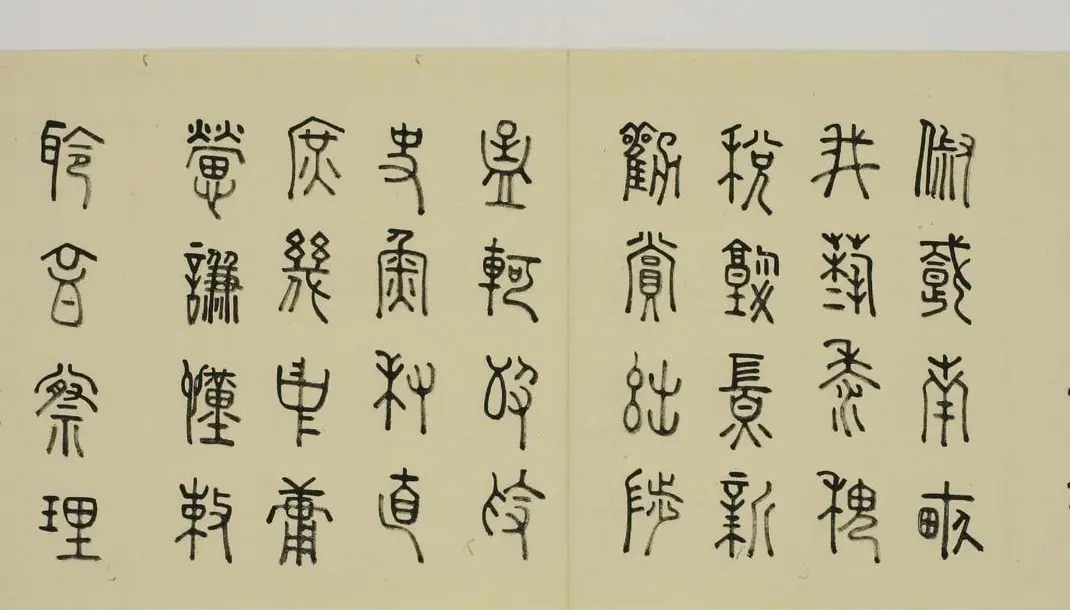 俶載南畝
我藝黍稷
稅熟貢新
勸賞絀陟
孟軻
史魚秉直
庶幾中庸
勞謙慬敕
聆音察理